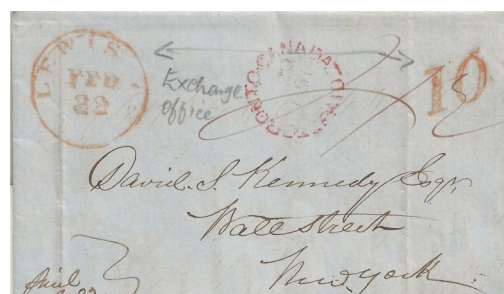 LEWIS
FEB
22
Exchange
office
CANADA
TORONTO
10
David. S. Kennedy Esqr,
Wall street
New York